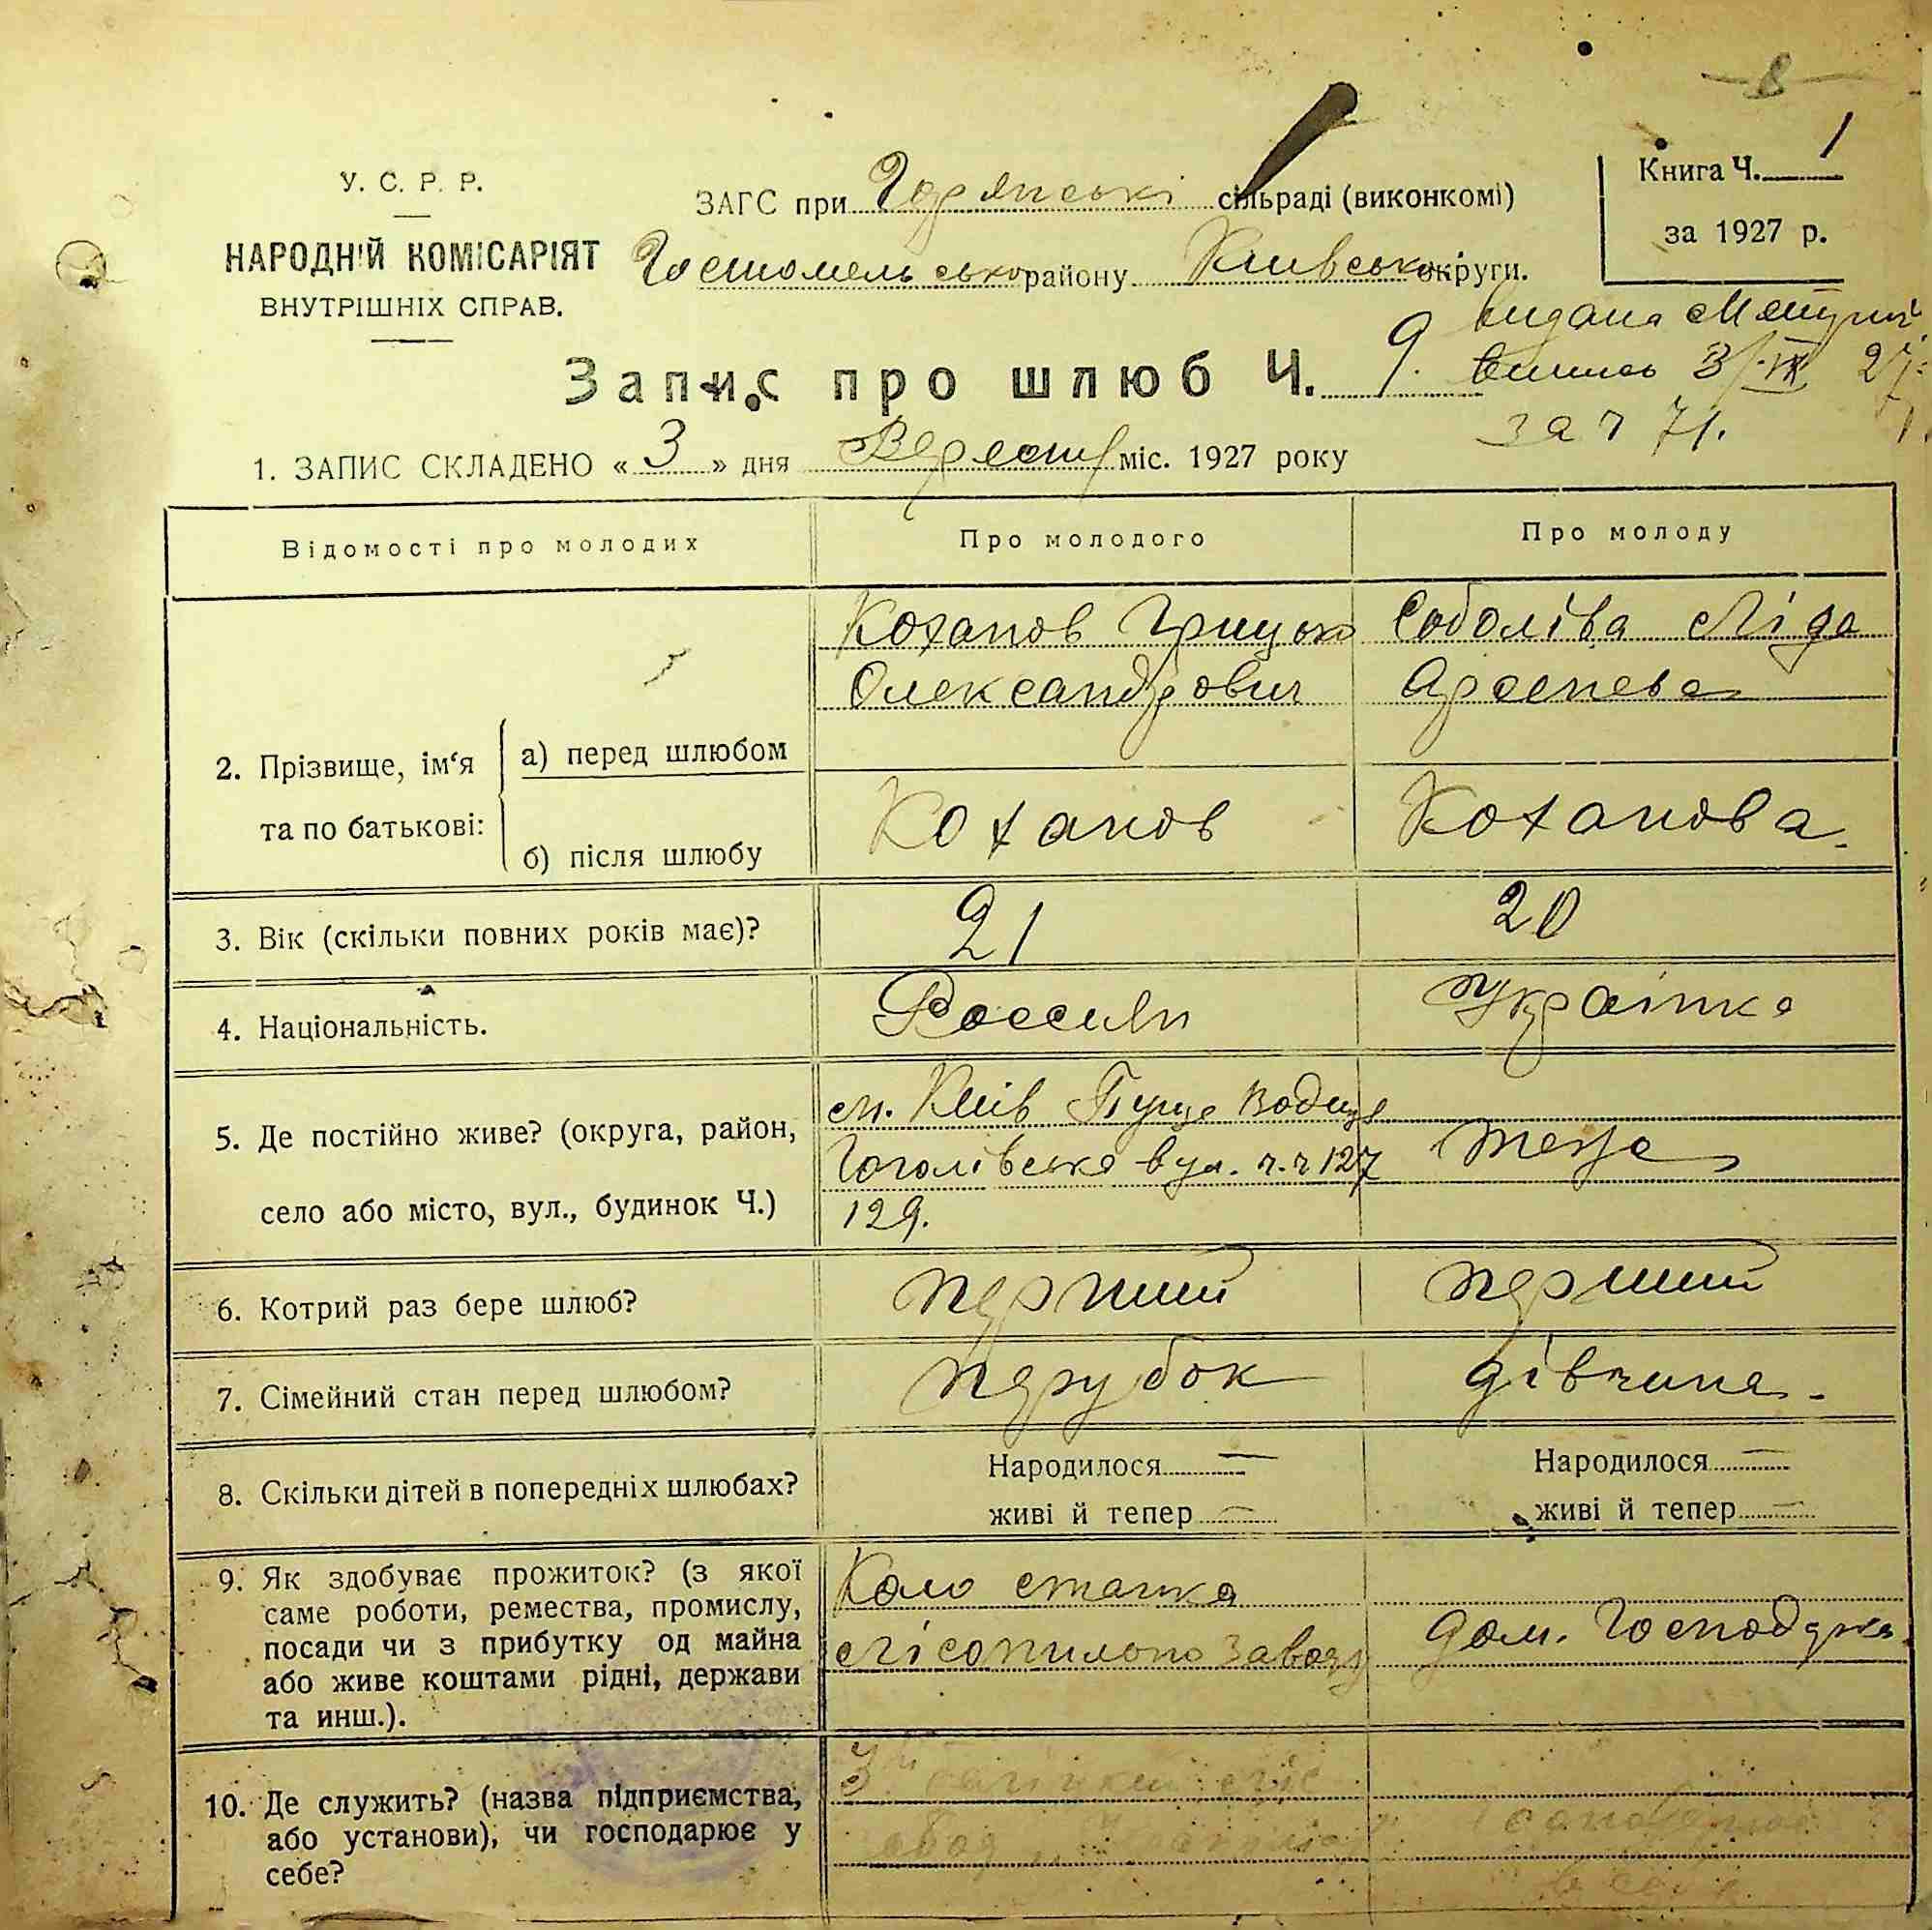 8
У. С. Р. Р.
НАРОДНІЙ КОМІСАРІЯТ
ВНУТРІШНІХ СПРАВ.
ЗАГС при Горянські сільраді (виконкомі)
Гостомельського району Київсько округи.
Книга Ч. 1
за 1927 р.
Запис про шлюб Ч. 9.
видана
виписъ 3/IX 27
за ч 71.
1. ЗАПИС СКЛАДЕНО « 3 » дня Вересня міс. 1927 року
Відомості про молодих
Про молодого
Про молоду
2. Прізвище, ім‘я та по батькові:
а) перед шлюбом
Коханов Грицько
Олександрович
Соболіва Ліда
Арсенева
б) після шлюбу
Коханов
Коханова.
3. Вік (скільки повних років має)?
21
20
4. Національність.
Россиян
Украінка
5. Де постійно живе? (округа, район,
село або місто, вул., будинок Ч.)
м. Киів Пуща Водиця
Гоголівська вул. ч.ч 127
129.
теща
6. Котрий раз бере шлюб?
перший
перший
7. Сімейний стан перед шлюбом?
парубок
дівчина.
8. Скільки дітей в попередніх шлюбах?
Народилося —
живі й тепер —
Народилося —
живі й тепер —
9. Як здобуває прожиток? (з якої
саме роботи, ремества, промислу,
посади чи з прибутку од майна
або живе коштами рідні, держави
та инш.).
Коло станка
лісопильно заводу
дом. Господарка
10. Де служить? (назва підприємства,
або установи), чи господарює у
себе?